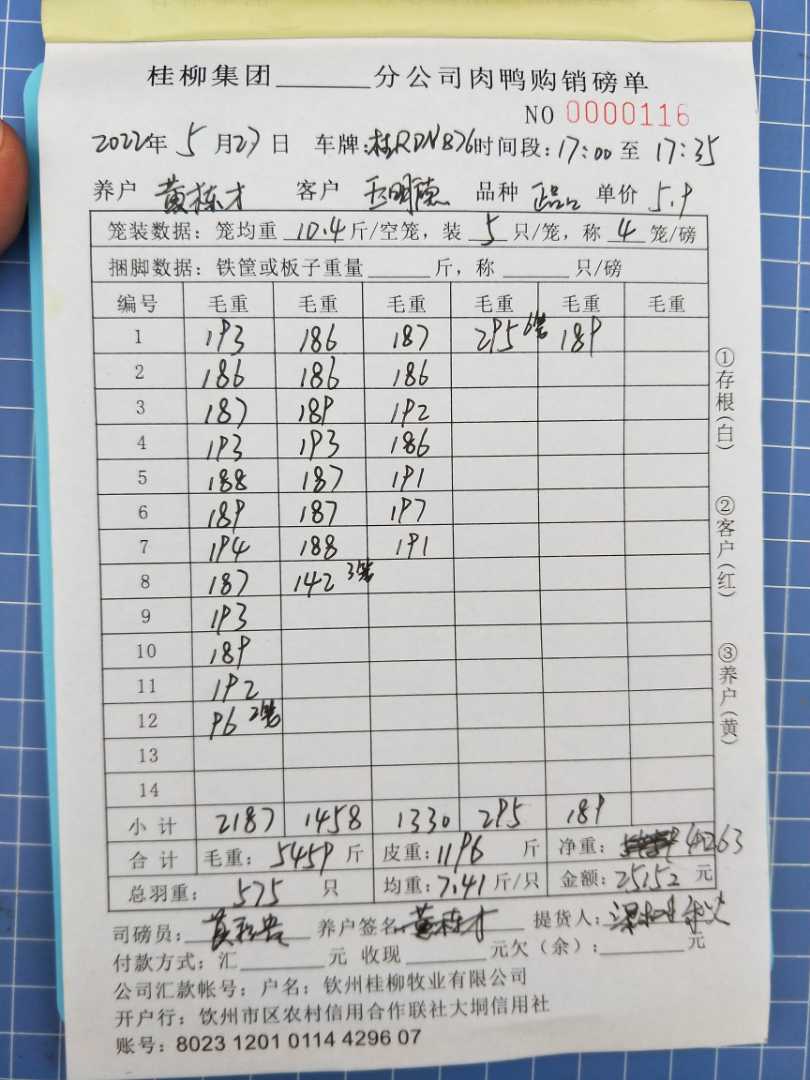 桂柳集团______分公司肉鸭购销磅单
NO 0000116
2022年 5 月27日 车牌:桂RDN876 时间段:17:00 至 17:35
养户 黄栋才 客户 王明德 品种 正品 单价 5.9
笼装数据：笼均重 10.4 斤/空笼，装 5 只/笼，称 4 笼/磅
捆脚数据：铁筐或板子重量______斤，称______只/磅
编号 毛重 毛重 毛重 毛重 毛重 毛重
1 193 186 187 295 6笼 189
2 186 186 186
3 187 189 192
4 193 193 186
5 188 187 191
6 189 187 197
7 194 188 191
8 187 142 3笼
9 193
10 189
11 192
12 96 2笼
13
14
小计 2187 1458 1330 295 189
合计 毛重：5459 斤 皮重：1196 斤 净重：4263
总羽重：575 只 均重：7.41 斤/只 金额：25152 元
司磅员： 养户签名 黄栋才 提货人：
付款方式：汇______元 收现______元欠（余）：______元
公司汇款帐号：户名：钦州桂柳牧业有限公司
开户行：钦州市区农村信用合作联社大垌信用社
账号：8023 1201 0114 4296 07
①存根(白)
②客户(红)
③养户(黄)